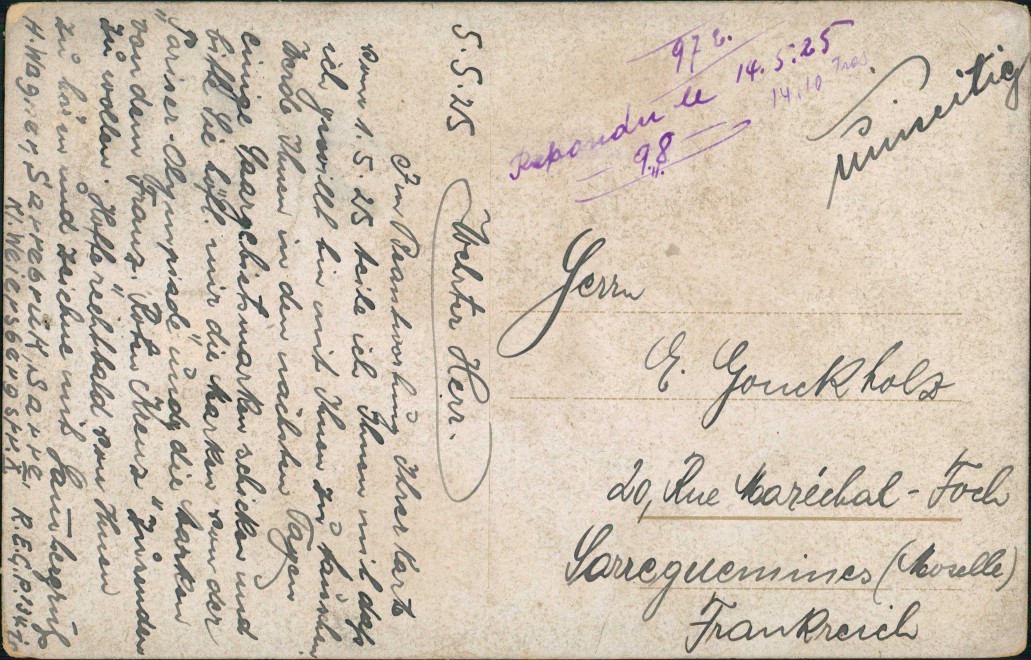 5.5.25
Wehrter Herr.
In Beantwortung Ihrer Karte
vom 1.5.25 teile ich Ihnen mit daß
ich gewillt bin mit Ihnen zu tauschen
Werde Ihnen in den nächsten Tagen
einige Saargebietsmarken schicken und
bitte Sie höfl. mir die Marken von der
"Pariser-Olympiade" und die Marken
von dem Franz. Roten Kreuz
zu wollen. Hoffe recht bald von Ihnen
zu hören und zeichne mit
H. Wagner, Sarrebrück, Sarre,
K. Weiersbergstr. X
97 E.
Repondu le 14.5.25
14.10
98
Herrn
E. Gouckholz
20, Rue Maréchal-Foch
Sarreguemines (Moselle)
Frankreich